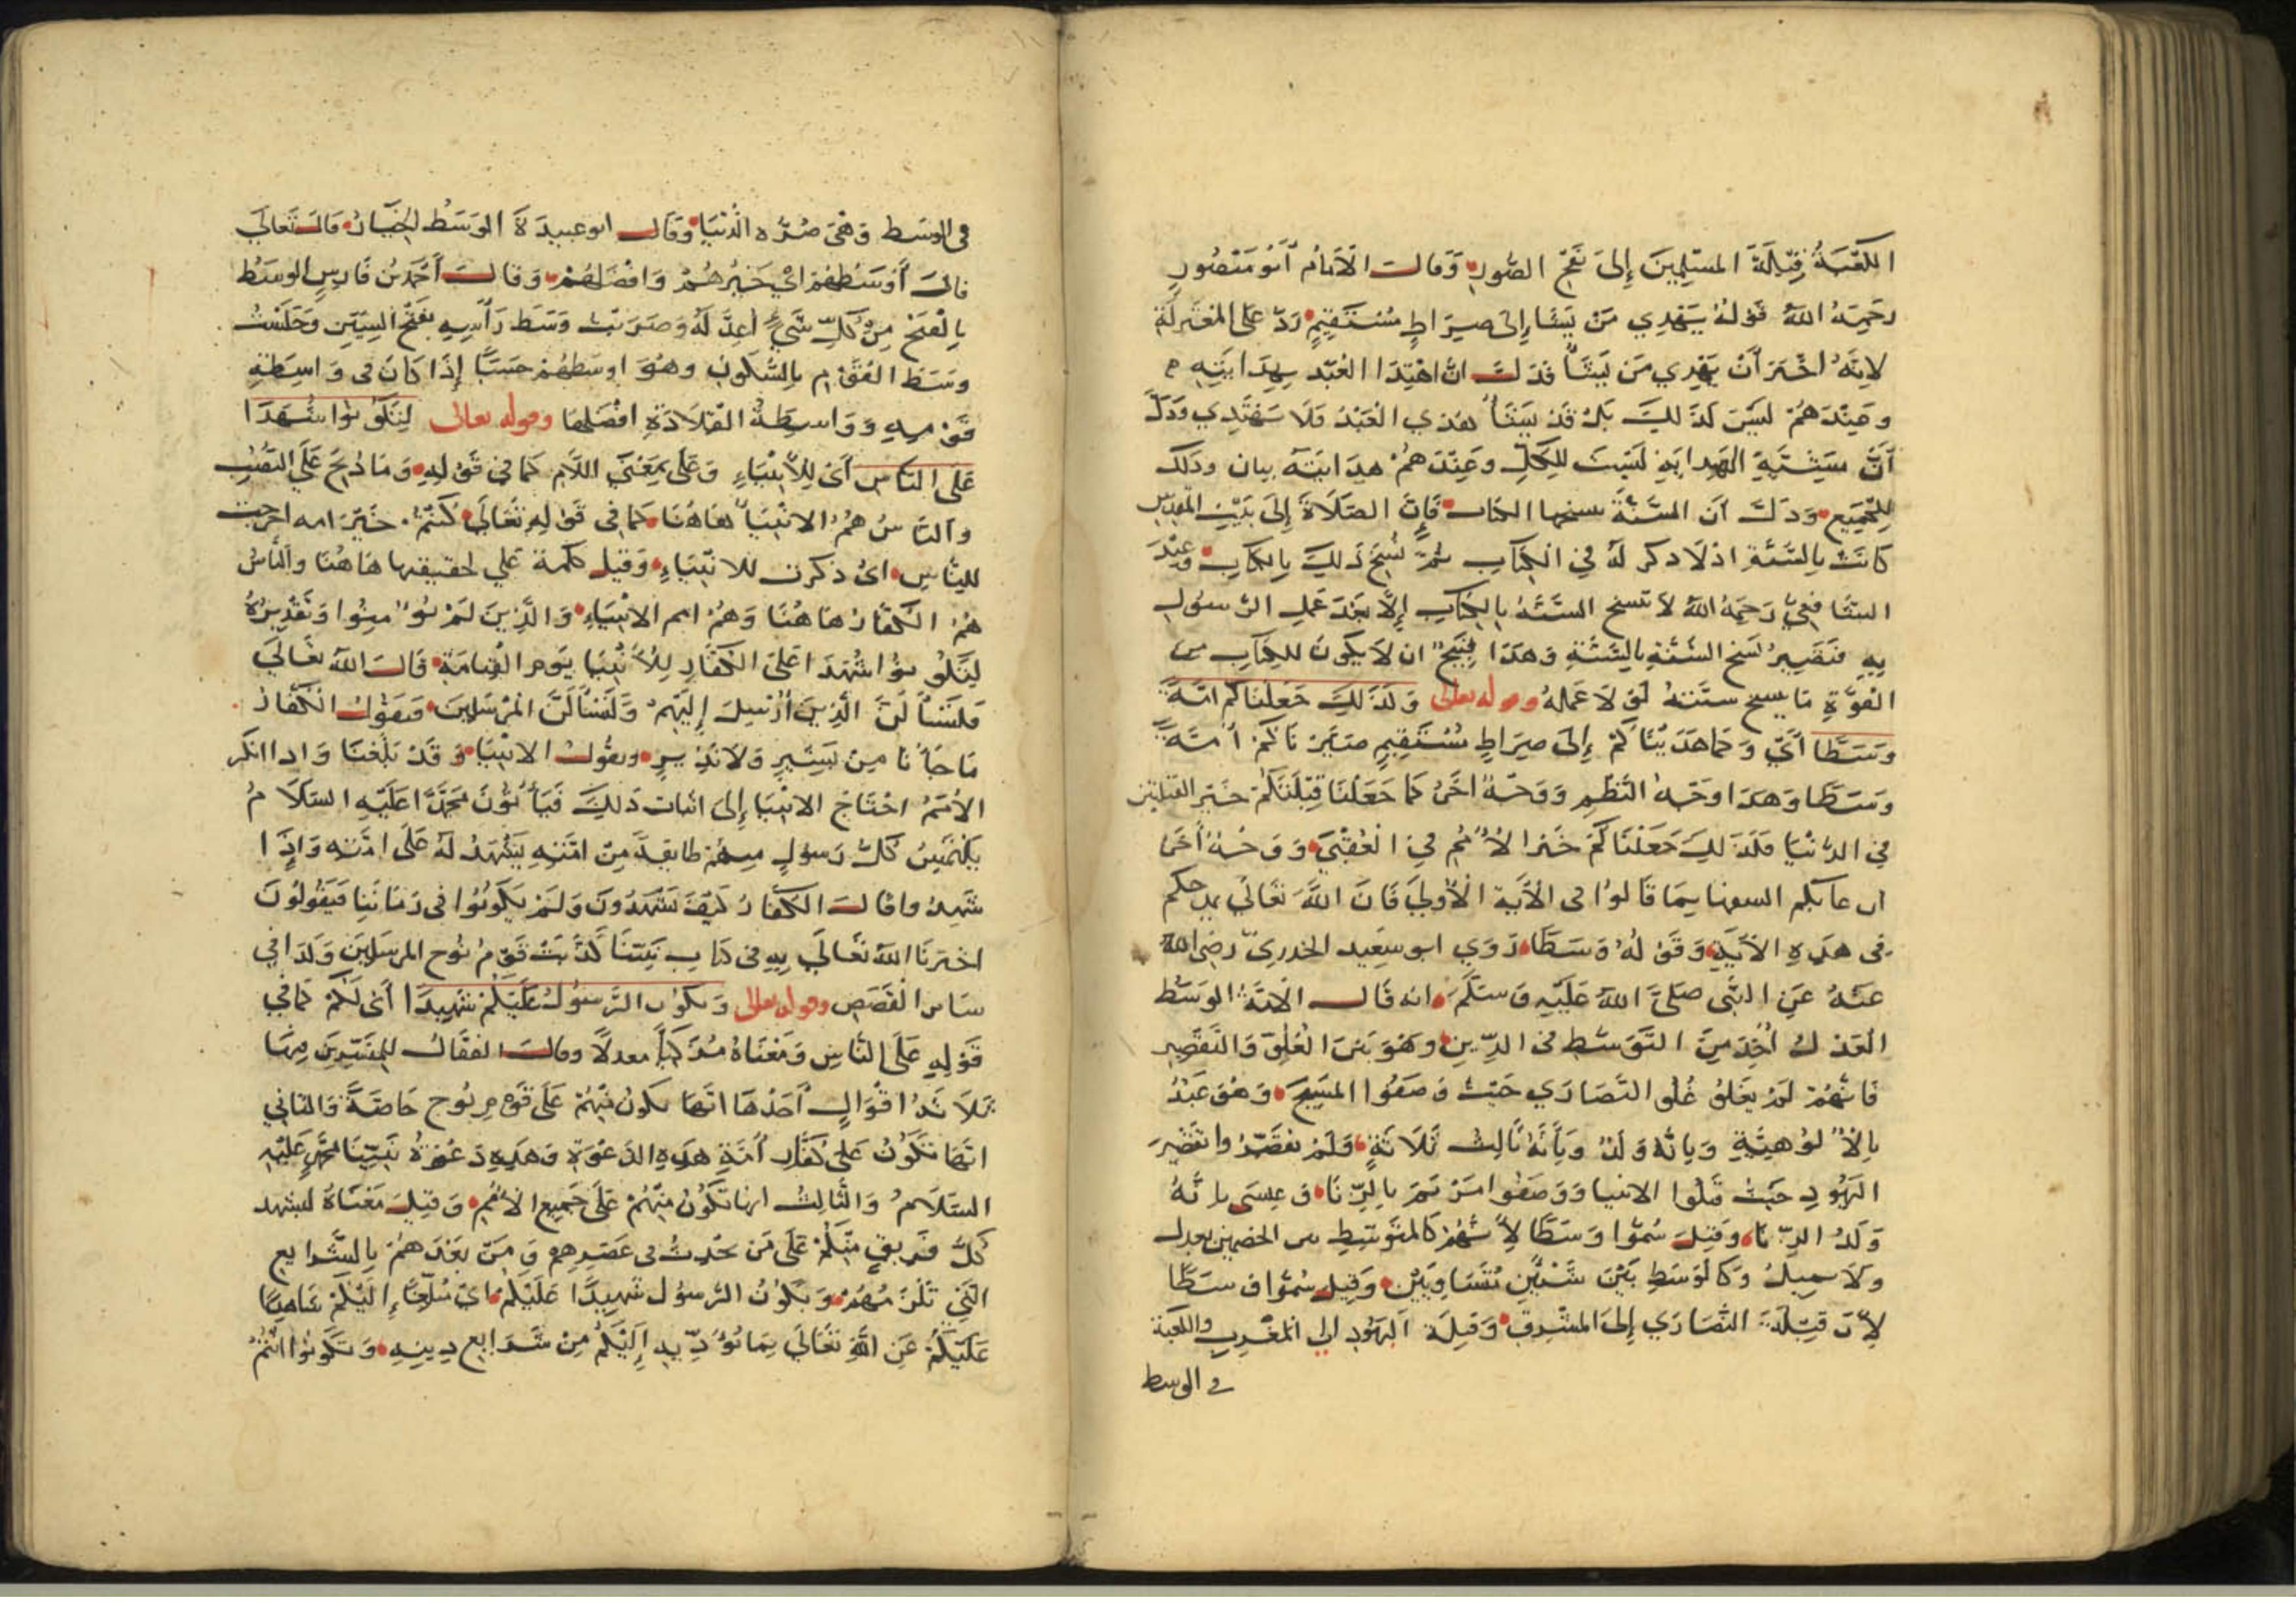 الكعبة قبلة المسلمين إلى نفخ الصور وقال الامام أبو منصور
رحمه الله قوله يهدي من يشا إلى صراط مستقيم رد على المعتزلة
لانه اخبر أن يهدي من يشا فدل ان اهتدا العبد بهدايته
وعندهم ليس كذلك بل قد يشا هدي العبد فلا يهتدي ودل
أن مشيئة الهداية ليست للكل وعندهم هدايته بيان وذلك
للجميع ودل ان السنة ينسخها الكتاب فان الصلاة إلى بيت المقدس
كانت بالسنة اذ لا ذكر له في الكتاب ثم نسخ ذلك بالكتاب وعند
الشافعي رحمه الله لا تنسخ السنة بالكتاب إلا بعد عمل الرسول
به فيصير نسخ السنة بالسنة وهذا قبيح ان لا يكون للكتاب من
القوة ما ينسخ سنته لولا عمله وقوله تعالى وكذلك جعلناكم امة
وسطا أي وكما هديناكم إلى صراط مستقيم صيرناكم أمة
وسطا وهذا وجه النظم ووجه اخر كما جعلنا قبلتكم خير القبلتين
في الدنيا فكذلك جعلناكم خير الأمم في العقبى ووجه أخر
ان عابكم السفها بما قالوا في الآية الأولى فان الله تعالى مدحكم
في هذه الآية وقوله وسطا روي ابو سعيد الخدري رضي الله
عنه عن النبي صلى الله عليه وسلم انه قال الامة الوسط
العدل أخذ من التوسط في الدين وهو بين الغلو والتقصير
فانهم لم يغلوا غلو النصاري حيث وصفوا المسيح وهو عبد
بالألوهية وبانه ولد وبأنه ثالث ثلاثة ولم يقصروا تقصير
اليهود حيث قتلوا الانبيا ووصفوا مريم بالزنا وعيسى بانه
ولد الزنا وقيل سموا وسطا لأنهم كالمتوسط بين الخصمين بعدل
ولا يميل وكالوسط بين شيئين متساويين وقيل سموا وسطا
لأن قبلة النصاري إلى المشرق وقبلة اليهود الى المغرب والكعبة
في الوسط
في الوسط وهي سرة الدنيا وقال ابو عبيدة الوسط الخيار قال تعالى
قال أوسطهم اي خيرهم وافضلهم وقال أحمد بن فارس الوسط
بالفتح من كل شيء اعدله وضربت وسط رأسه بفتح السين وجلست
وسط القوم بالسكون وهو اوسطهم حسبا إذا كان في واسطة
قومه وواسطة القلادة افضلها وقوله تعالى لتكونوا شهدا
على الناس أي للأنبياء وعلى بمعنى اللام كما في قوله وما ذبح على النصب
والناس هم الانبيا هاهنا كما في قوله تعالى كنتم خير امة اخرجت
للناس اي ذكرت للانبياء وقيل كلمة على لحقيقتها هاهنا والناس
هم الكفار هاهنا وهم امم الانبياء والذين لم يؤمنوا وتقديره
لتكونوا شهدا على الكفار للأنبيا يوم القيامة قال الله تعالى
فلنسألن الذين أرسل إليهم ولنسألن المرسلين فيقول الكفار
ما جأنا من بشير ولا نذير ويقول الانبيا وقد بلغنا واذا انكر
الأمم احتاج الانبيا إلى اثبات ذلك فيأتون محمدا عليه السلام
يلتمس كل رسول منهم طائفة من امته يشهد له على امته واذا
شهدوا قال الكفار كيف تشهدون ولم يكونوا في زماننا فيقولون
اخبرنا الله تعالى به في كتاب نبينا كذبت قوم نوح المرسلين وكذا في
سائر القصص وقوله تعالى ويكون الرسول عليكم شهيدا أي لكم كما في
قوله على الناس ومعناه مزكيا معدلا وقال القفال للمفسرين فيها
ثلاثة اقوال أحدها انها تكون منهم على قوم نوح خاصة والثاني
انها تكون على كفار أمة هذه الدعوة وهذه دعوة نبينا محمد عليه
السلام والثالث انها تكون منهم على جميع الأمم وقيل معناه ليشهد
كل فريق منكم على من يحدث في عصرهم ومن بعدهم بالشرايع
التي تلزمهم ويكون الرسول شهيدا عليكم اي مبلغا إليكم شاهدا
عليكم عن الله تعالى بما تؤديه إليكم من شرايع دينه وتكونوا انتم